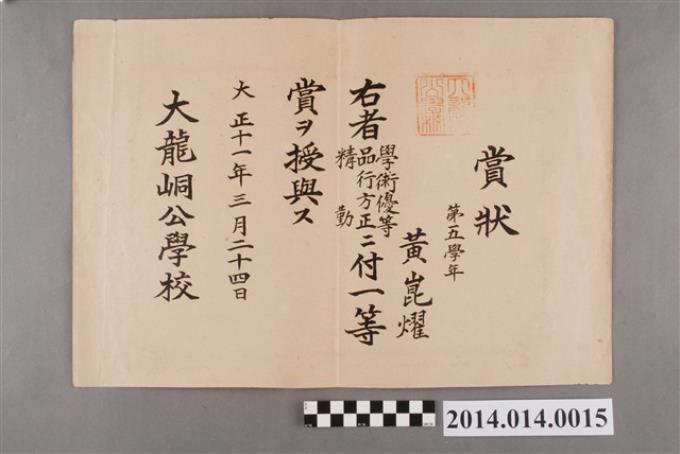 賞狀
第五學年
黃崑燿
右者學術優等品行方正精勤ニ付一等
賞ヲ授與ス
大正十一年三月二十四日
大龍峒公學校
2014.014.0015